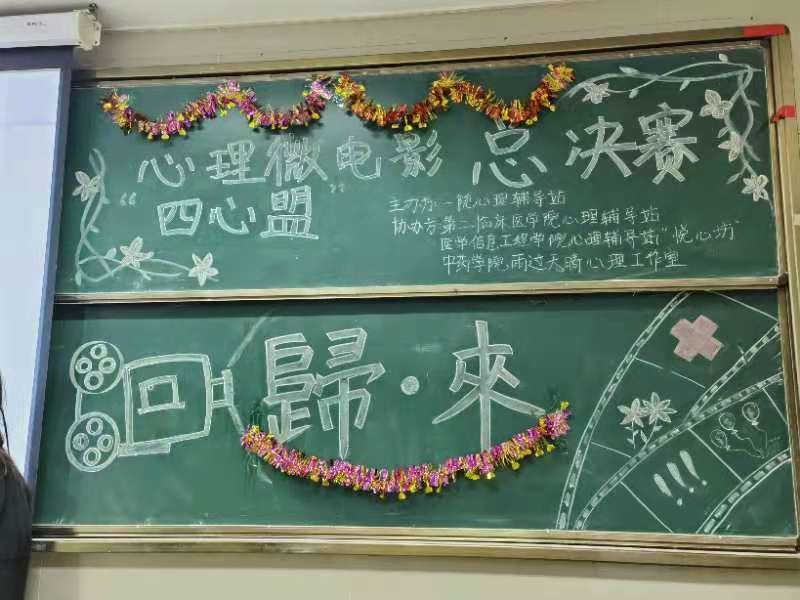 心理微电影 总决赛
“四心盟”
主办方一院心理辅导站
协办方第二临床医学院心理辅导站
医学信息工程学院心理辅导站“悦心坊”
中药学院雨过天晴心理工作室
回歸·來
!!!!